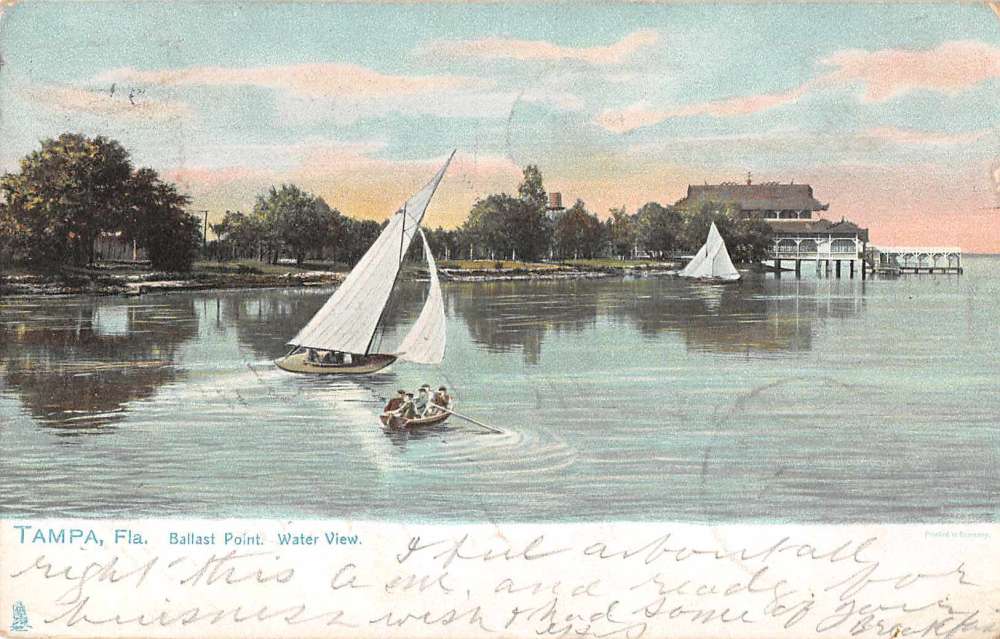 TAMPA, Fla. Ballast Point. Water View.
Printed in Germany.
I feel about all
right this a.m. and ready for
buisness wish I had some of your
Breakfast